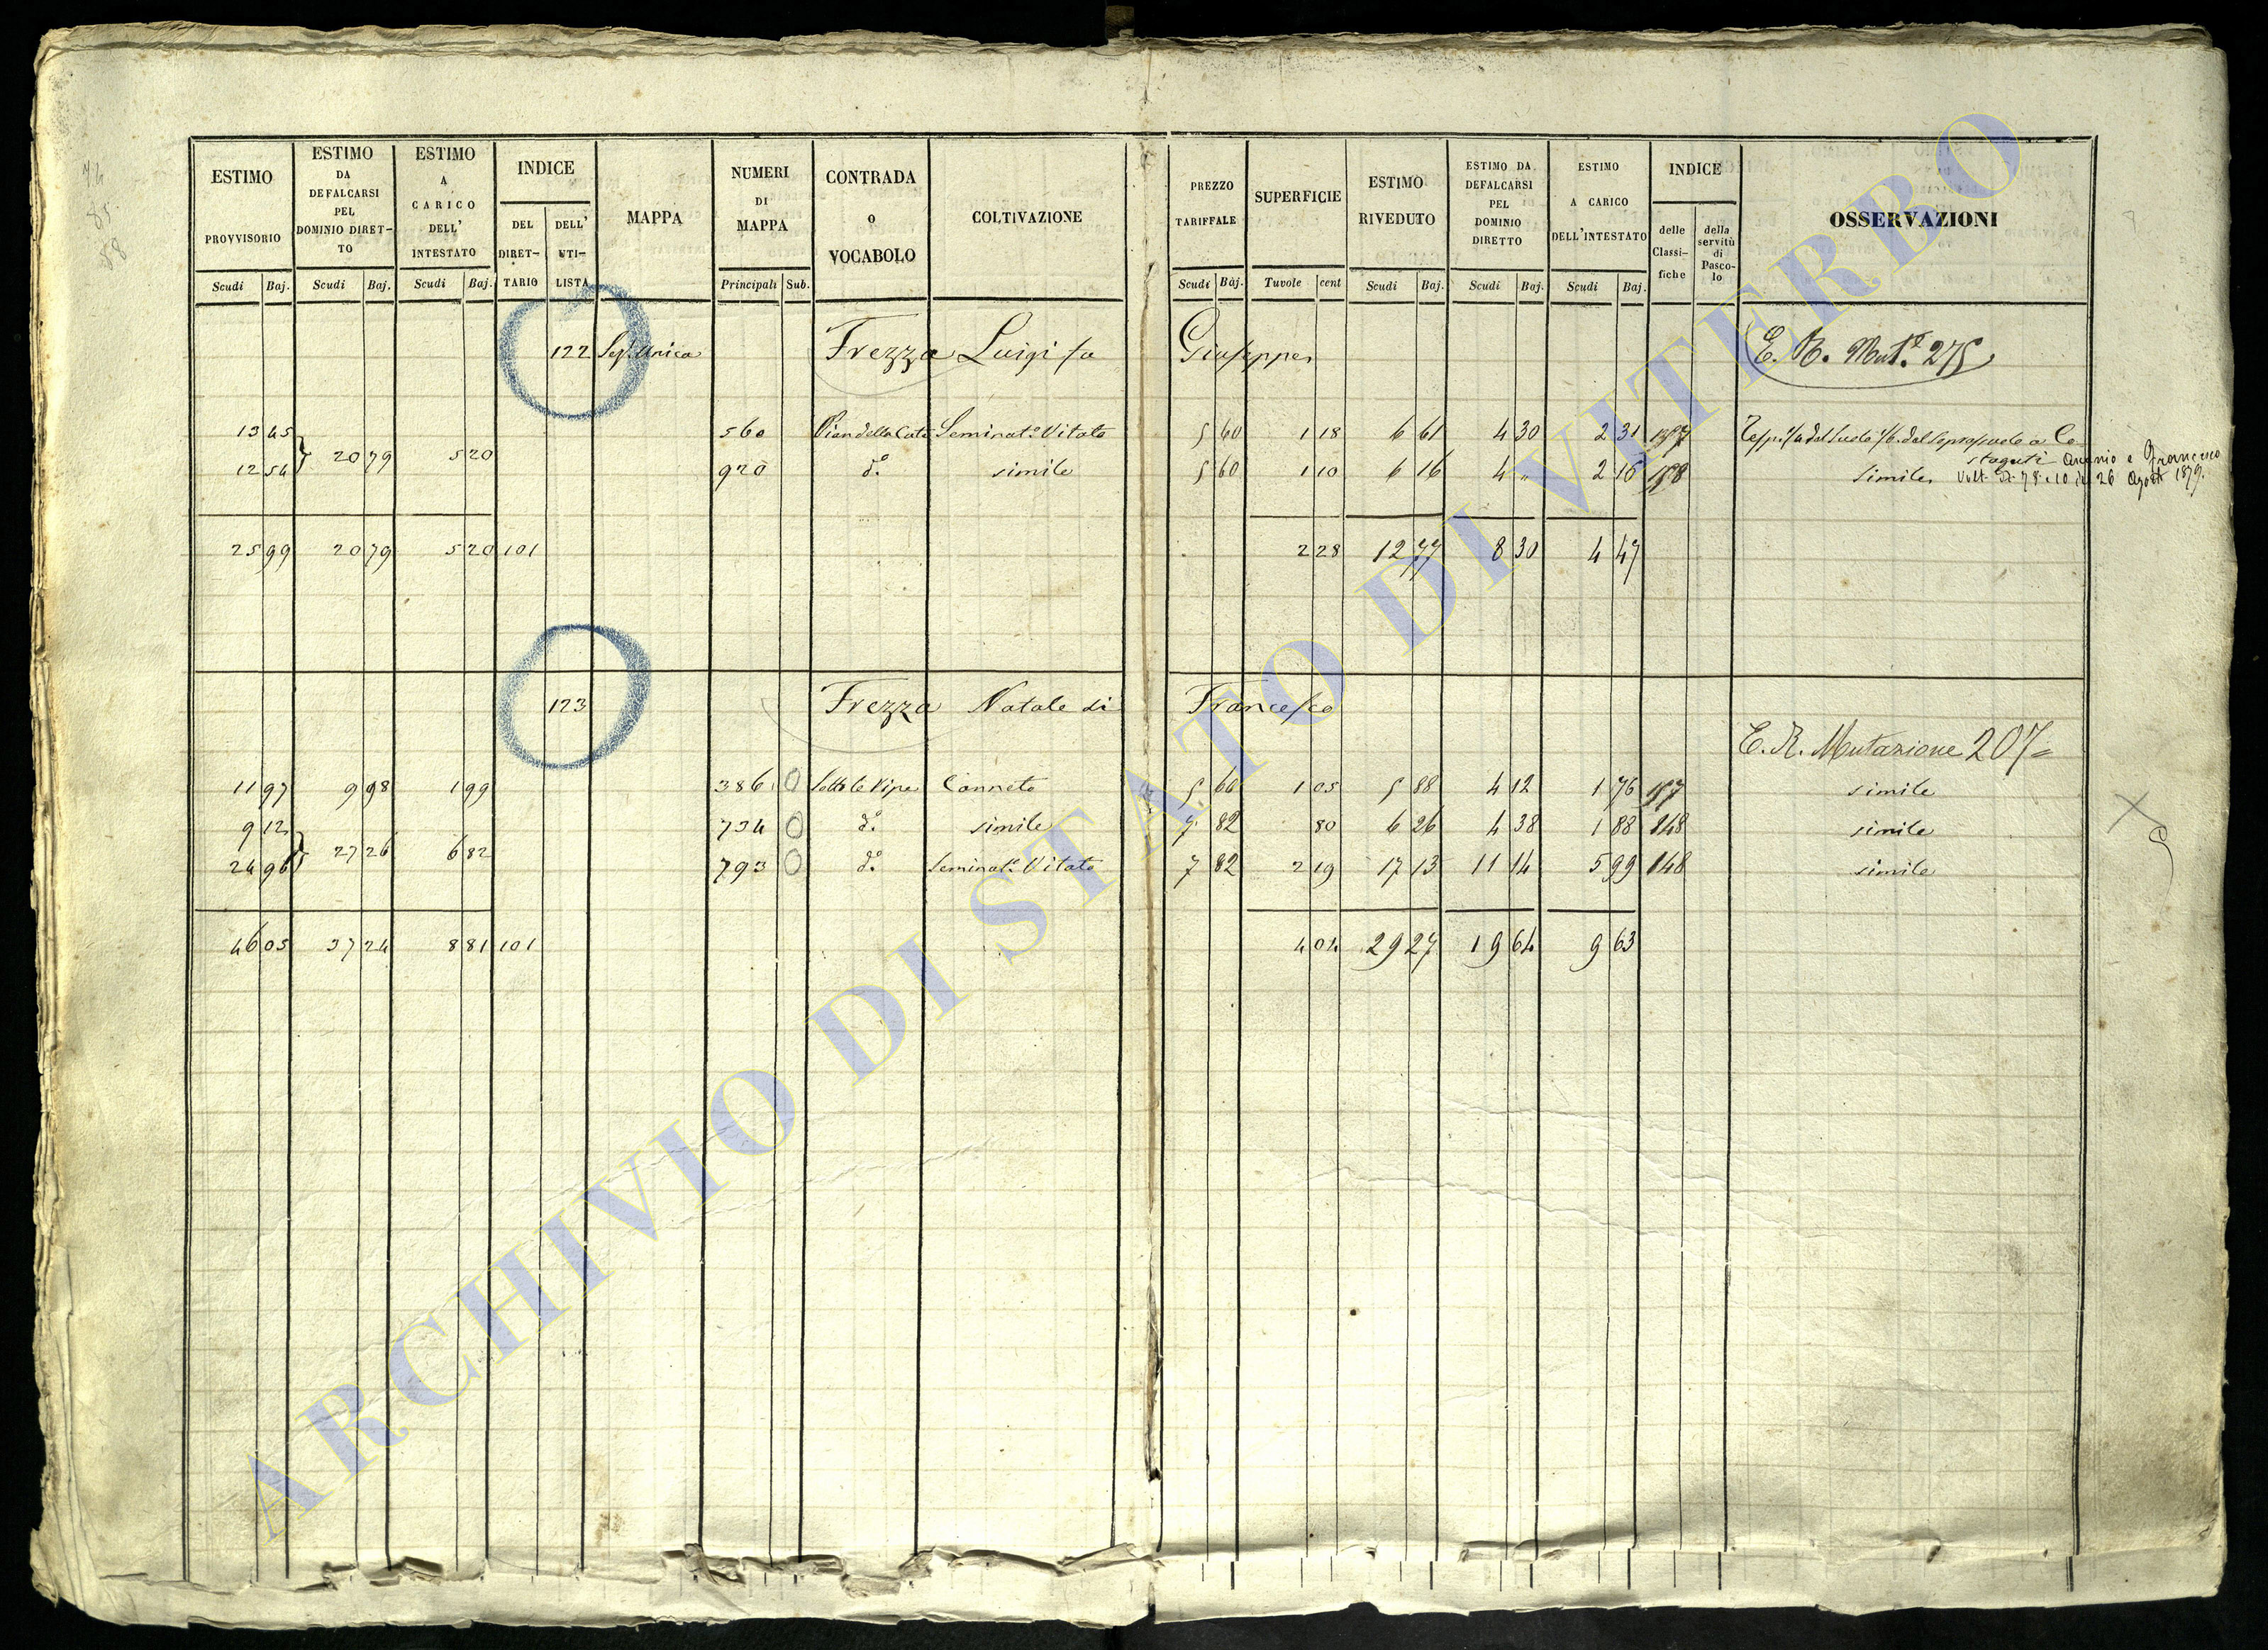 ESTIMO PROVVISORIO Scudi Baj.
ESTIMO DA DEFALCARSI PEL DOMINIO DIRETTO Scudi Baj.
ESTIMO A CARICO DELL' INTESTATO Scudi Baj.
INDICE DEL DIRETTARIO DELL' UTILISTA
MAPPA
NUMERI DI MAPPA Principali Sub.
CONTRADA o VOCABOLO
COLTIVAZIONE
PREZZO TARIFFALE Scudi Baj.
SUPERFICIE Tavole cent
ESTIMO RIVEDUTO Scudi Baj.
ESTIMO DA DEFALCARSI PEL DOMINIO DIRETTO Scudi Baj.
ESTIMO A CARICO DELL'INTESTATO Scudi Baj.
INDICE delle Classifiche della servitù di Pascolo
OSSERVAZIONI
122 Sez. Unica Frezza Luigi fu Giuseppe E. R. Mut. 275
13 45 560 Seminat.º Vitato 5 60 1 18 6 61 4 30 2 31
20 79 5 20
12 54 920 d.º simile 5 60 1 10 6 16 4 " 2 16 simile Francesco
26 Agosto 1879
25 99 20 79 5 20 101 2 28 12 77 8 30 4 47
123 Frezza Natale di Francesco
E. R. Mutazione 207
11 97 9 98 1 99 386 Sotto le Ripe Canneto 5 60 1 05 5 88 4 12 1 76 simile
9 12 734 d.º simile 7 82 80 6 26 4 38 1 88 148 simile
27 26 6 82
24 96 793 d.º Seminat.º Vitato 7 82 2 19 17 13 11 14 5 99 148 simile
46 05 37 24 8 81 101 4 04 29 27 19 64 9 63
ARCHIVIO DI STATO DI VITERBO